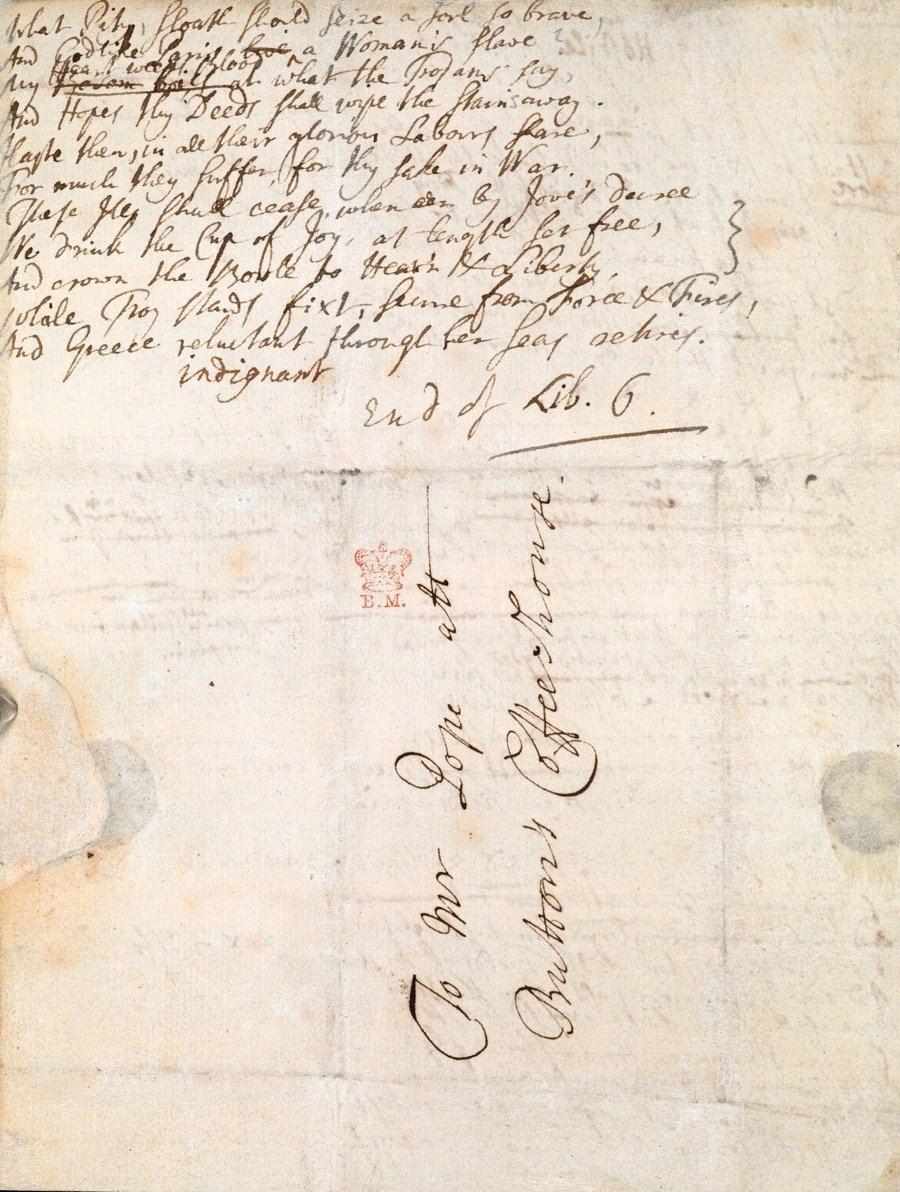 What Pity, Sloath should seize a soul so brave,
And Godlike Paris live a Woman's slave
Heart weeps Blood
My at what the Trojans say,
And Hopes thy Deeds shall wipe the stain away.
Haste then, in all their glorious Labours share,
For much they suffer, for thy sake in War.
These shall cease, when by Jove's decree
We drink the Cup of Joy, at length set free,
And crown the Bowle to Heav'n & Liberty,
While Troy stands fixt, secure from Force & Fires,
And Greece reluctant through her Seas retires.
indignant
End of Lib. 6.
B.M.
To Mr Pope att
Button's Coffeehouse.